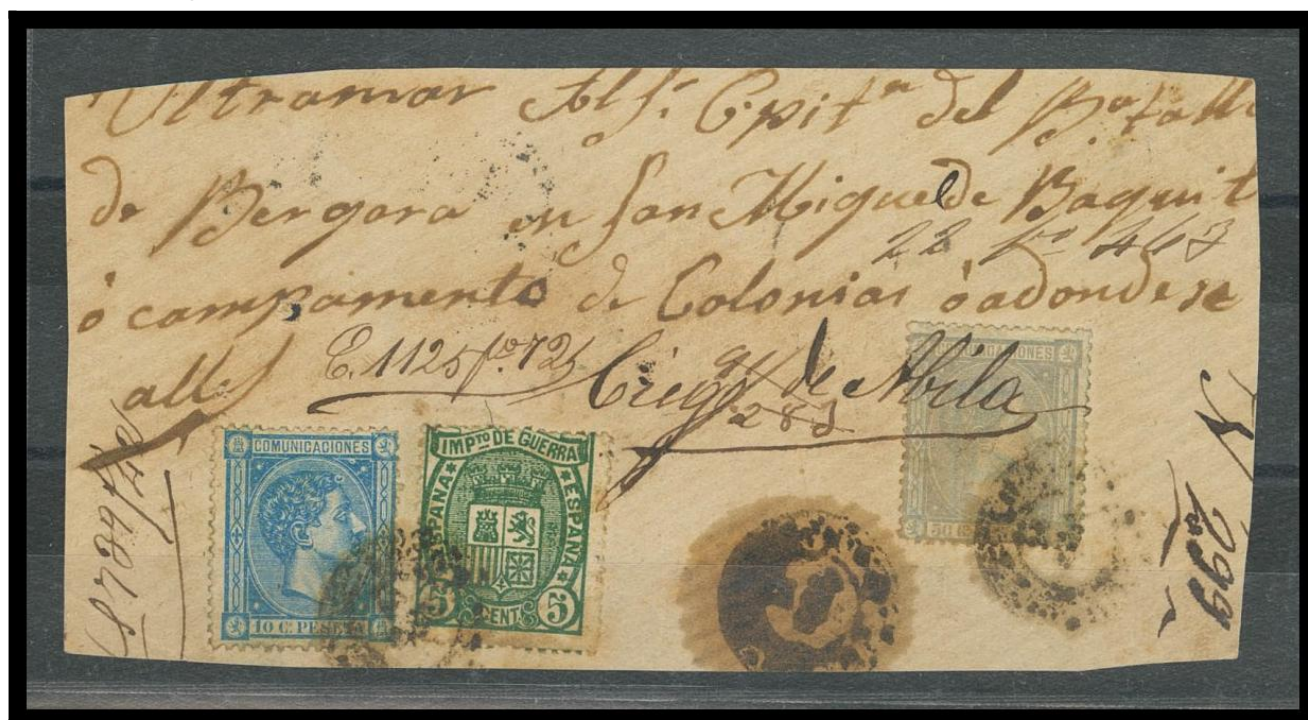 Ultramar Al Sr. Cpitn del Batall
de Bergara en San Miguel de Baquit
22 fo 467
ó campamento de Colonias ó adonde se
alle
E. 1125 fo. 72
Ciego de Abila
283
COMUNICACIONES
10 C. PESETA
IMPTO DE GUERRA
ESPAÑA
ESPAÑA
5 CENT. 5
COMUNICACIONES
50 C.
299